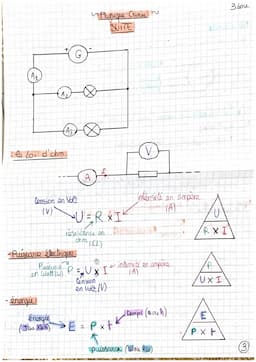 3ème
Physique Chimie
SUITE
G
A1
A2
A3
- La loi d'ohm
V
A
tension en Volt (V)
intensité en ampère (A)
U = R x I
résistance en ohm (Ω)
U
R x I
- Puissance électrique
Puissance en Watt (W)
P = U x I
intensité en ampère (A)
tension en Volt (V)
P
U x I
- énergie
Énergie
E = P x t
puissance
E
P x t
3